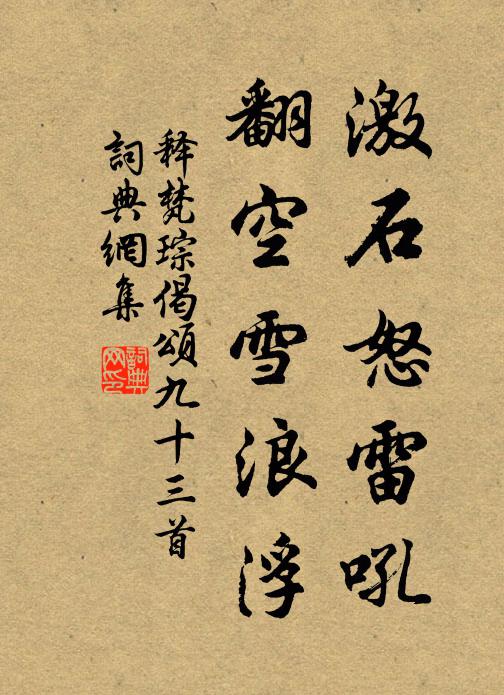 激石怒雷吼
翻空雪浪浮
释梵琮偈頌九十三首
詞典網集
詞典网印